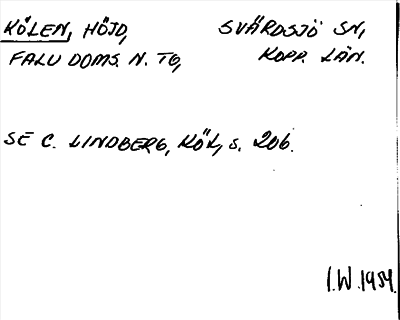 KÖLEN, HÖJD, SVÄRDSJÖ SN,
FALU DOMS. N. TG, KOPP. LÄN.
SE C. LINDBERG, KÖL, s. 206.
I.W. 1959.